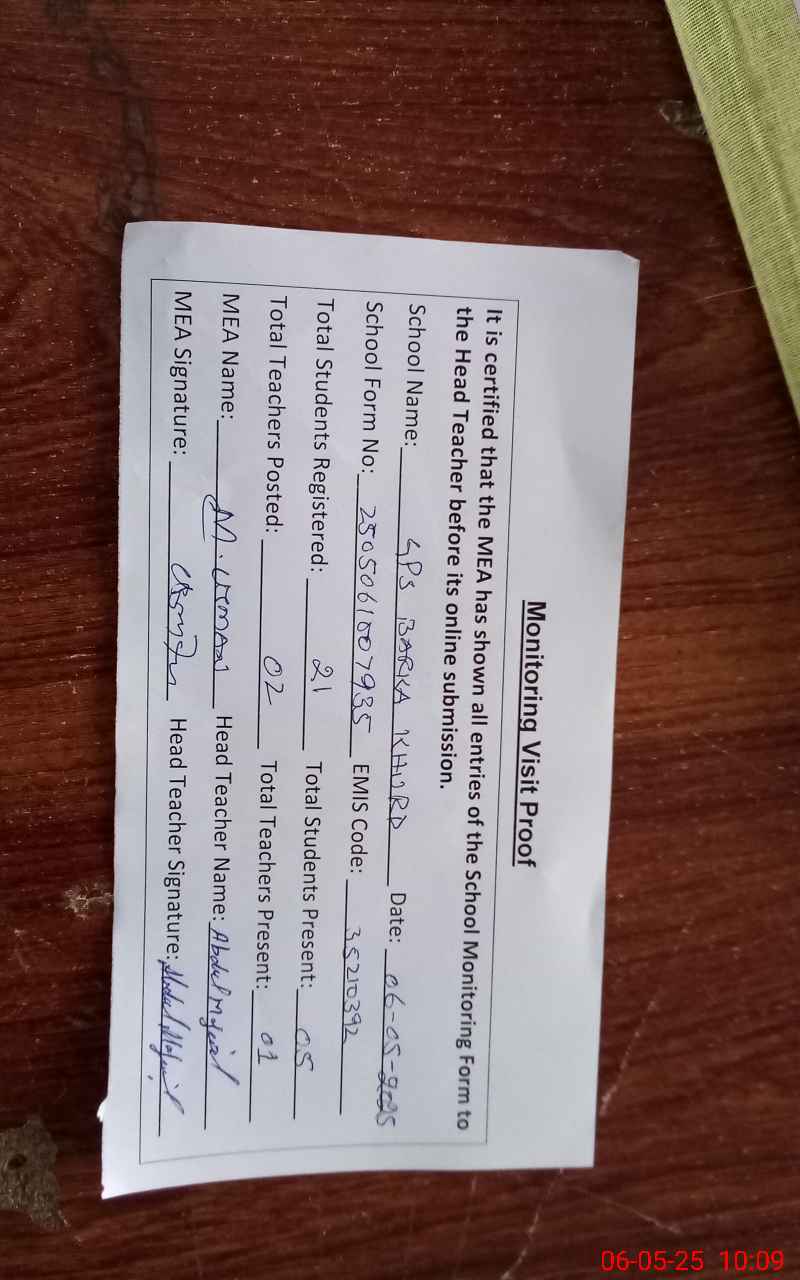 Monitoring Visit Proof
It is certified that the MEA has shown all entries of the School Monitoring Form to
the Head Teacher before its online submission.
School Name: GPS BARKA KHURD Date: 06-05-2025
School Form No: 2505061007935 EMIS Code: 35210392
Total Students Registered: 21 Total Students Present: 05
Total Teachers Posted: 02 Total Teachers Present: 01
MEA Name: M. USMAN Head Teacher Name: Abdul Majeed
MEA Signature: Head Teacher Signature: Abdul Majeed
06-05-25 10:09